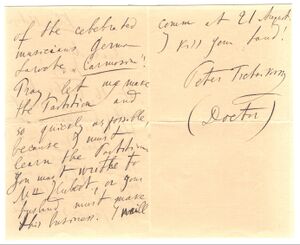 of the celebrated
musicians, Germa
Laroche "Carmosine".
Pray let me make
the Partition and
so quickly as possible
because I must
learn the Partition
You may writhe to
Mme Hubert, or your
husband must make
this business. I will
comm at 21 August.
I kiss your hand!
Peter Tschaikovsky
(Doctor)